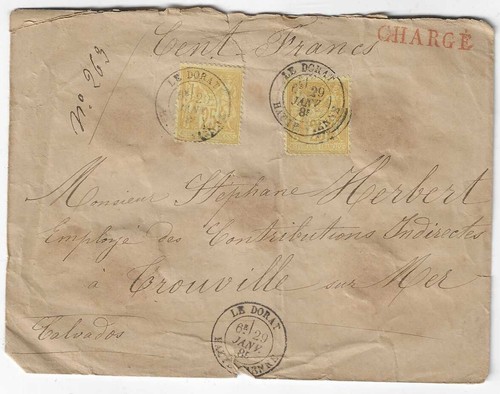 Cent Francs
CHARGÉ
No. 263
LE DORAT
LE DORAT
6E/ 29
JANV.
85
HTE VIENNE
Monsieur Stéphane Herbert
Employé des Contributions Indirectes
à Trouville sur Mer
Calvados
LE DORAT
6E/ 29
JANV.
85